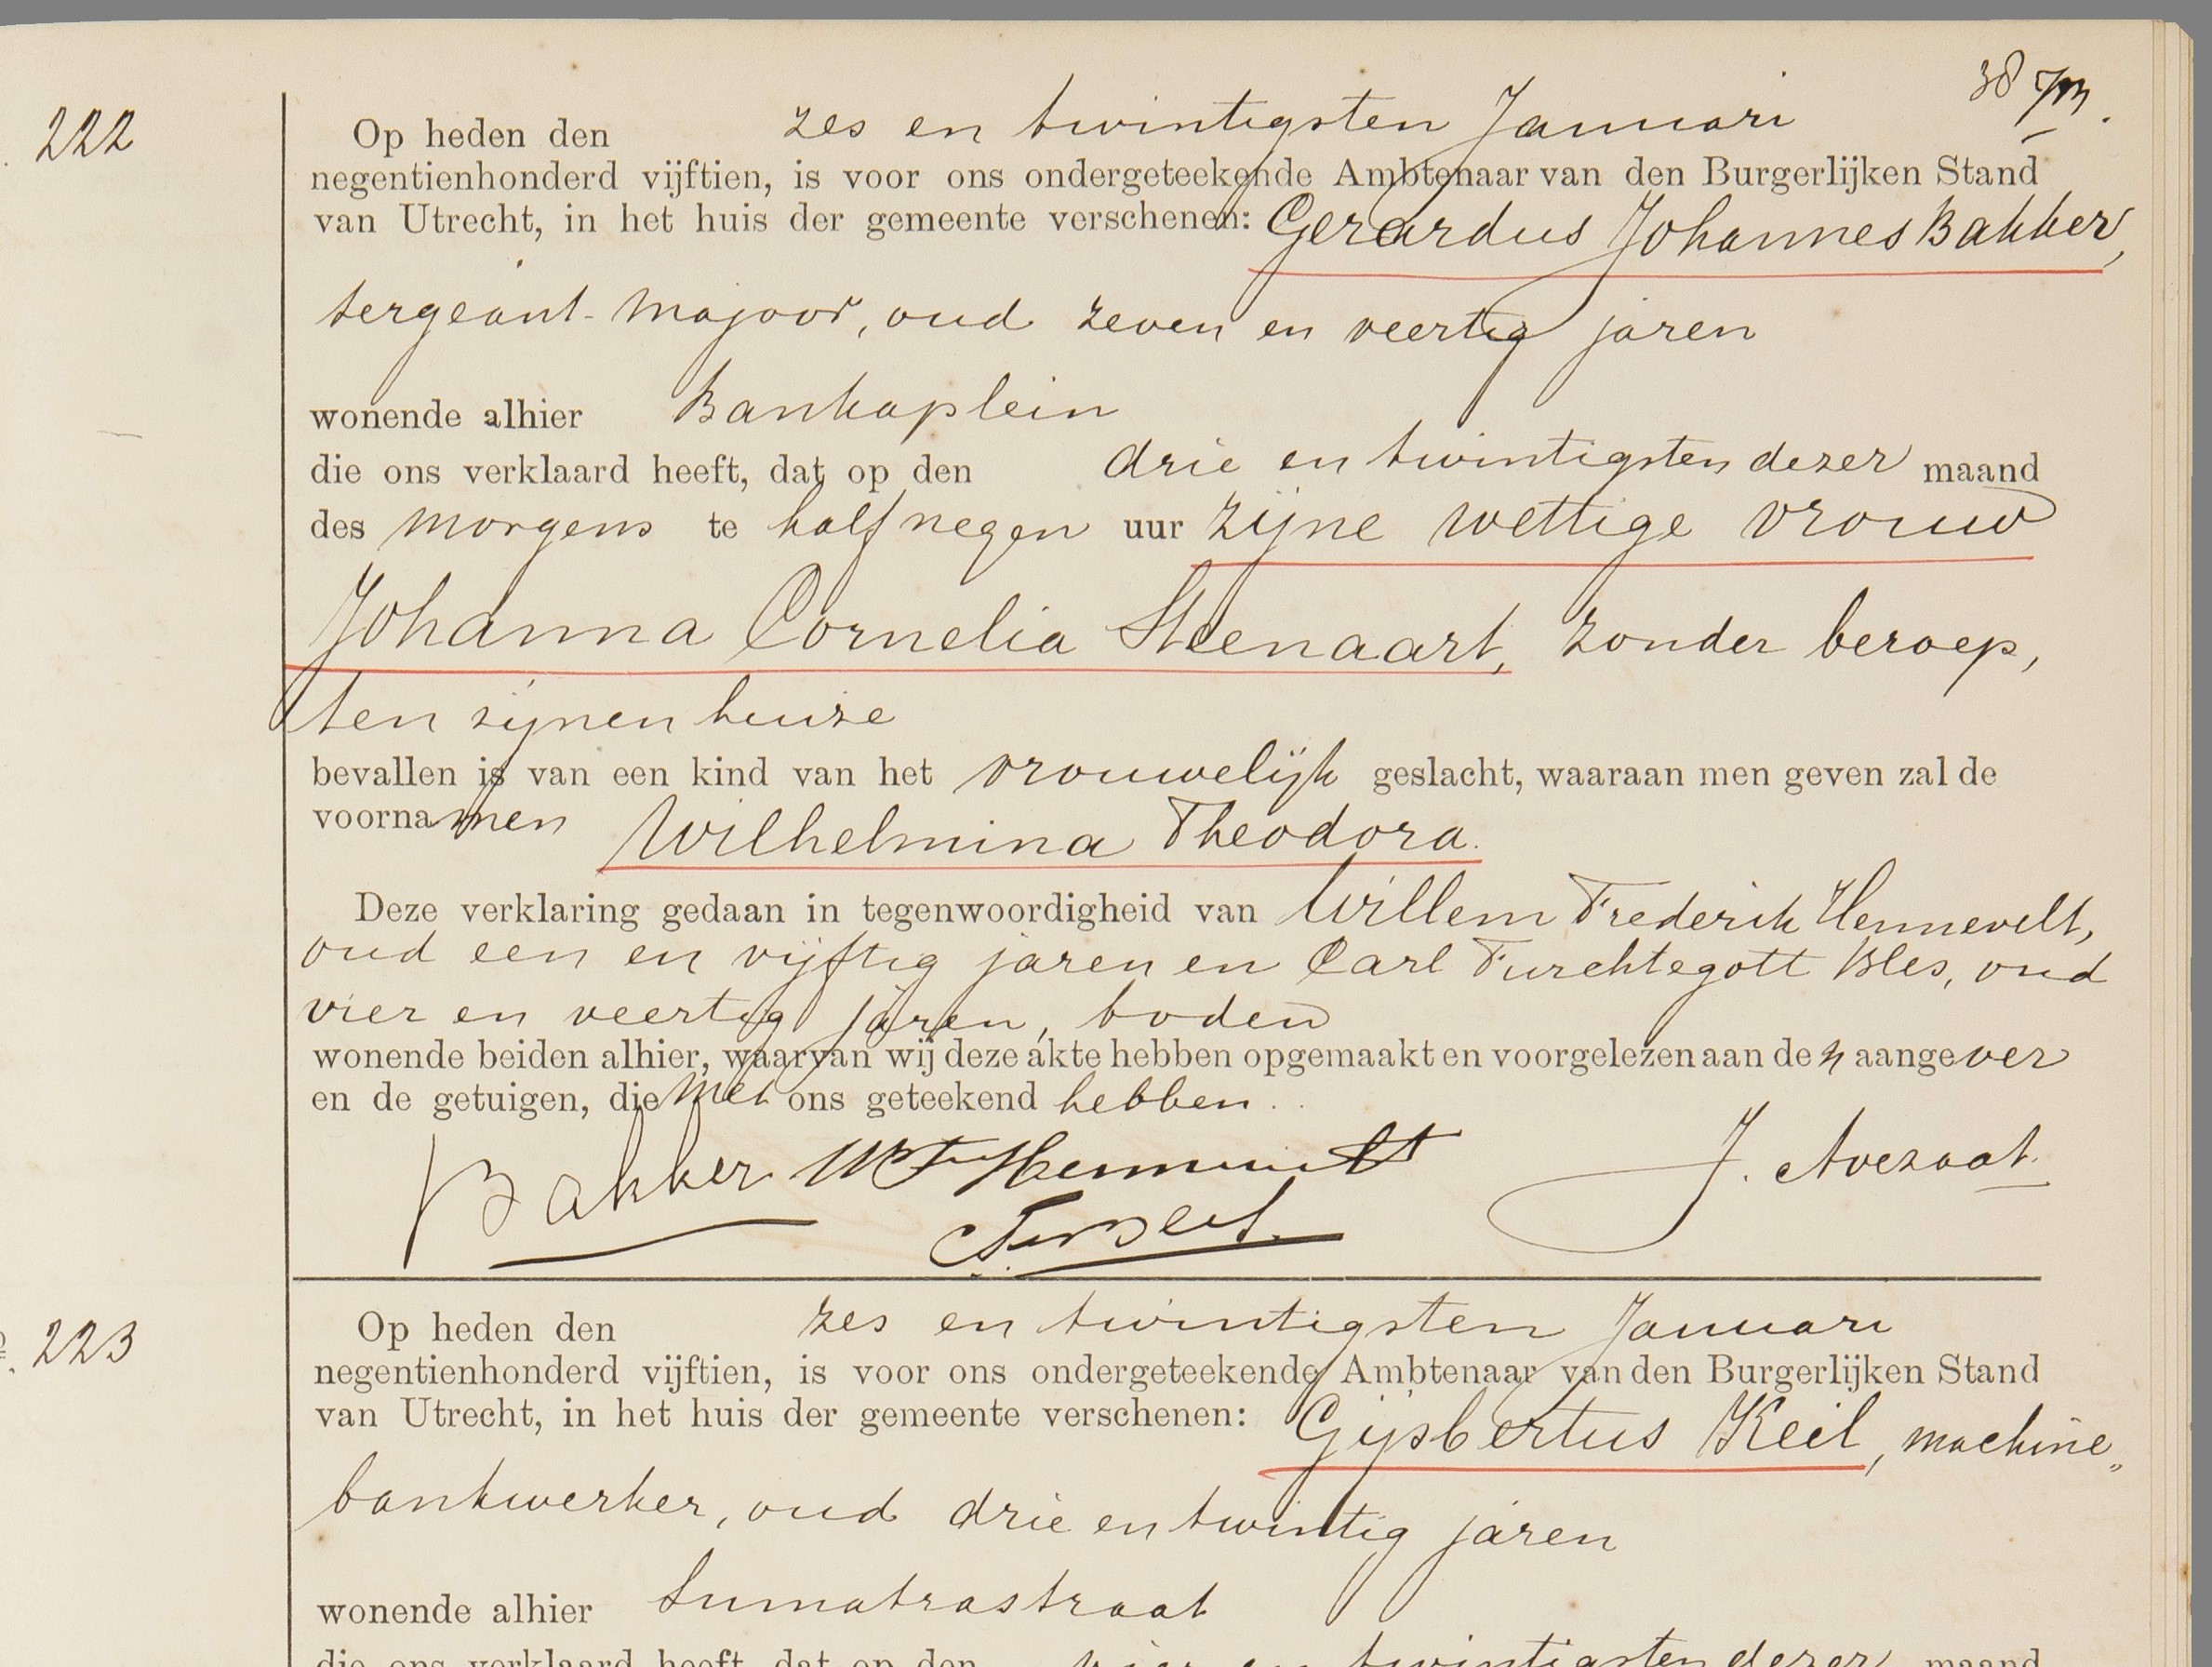 38
222
Op heden den zes en twintigsten Januari
negentienhonderd vijftien, is voor ons ondergeteekende Ambtenaar van den Burgerlijken Stand
van Utrecht, in het huis der gemeente verschenen: Gerardus Johannes Bakker,
sergeant-majoor, oud zeven en veertig jaren
wonende alhier Bankaplein
die ons verklaard heeft, dat op den drie en twintigsten dezer maand
des morgens te half negen uur zijne wettige vrouw
Johanna Cornelia Steenaart, zonder beroep,
ten zijnen huize
bevallen is van een kind van het vrouwelijk geslacht, waaraan men geven zal de
voornamen Wilhelmina Theodora.
Deze verklaring gedaan in tegenwoordigheid van Willem Frederik Hennevelt,
oud een en vijftig jaren en Carl Furchtegott Bles, oud
vier en veertig jaren, boden
wonende beiden alhier, waarvan wij deze akte hebben opgemaakt en voorgelezen aan den aangever
en de getuigen, die met ons geteekend hebben.
Bakker J. Avezaat
223
Op heden den zes en twintigsten Januari
negentienhonderd vijftien, is voor ons ondergeteekende Ambtenaar van den Burgerlijken Stand
van Utrecht, in het huis der gemeente verschenen: Gijsbertus Keil, machine„
bankwerker, oud drie en twintig jaren
wonende alhier Sumatrastraat
die ons verklaard heeft, dat op den vier en twintigsten dezer maand